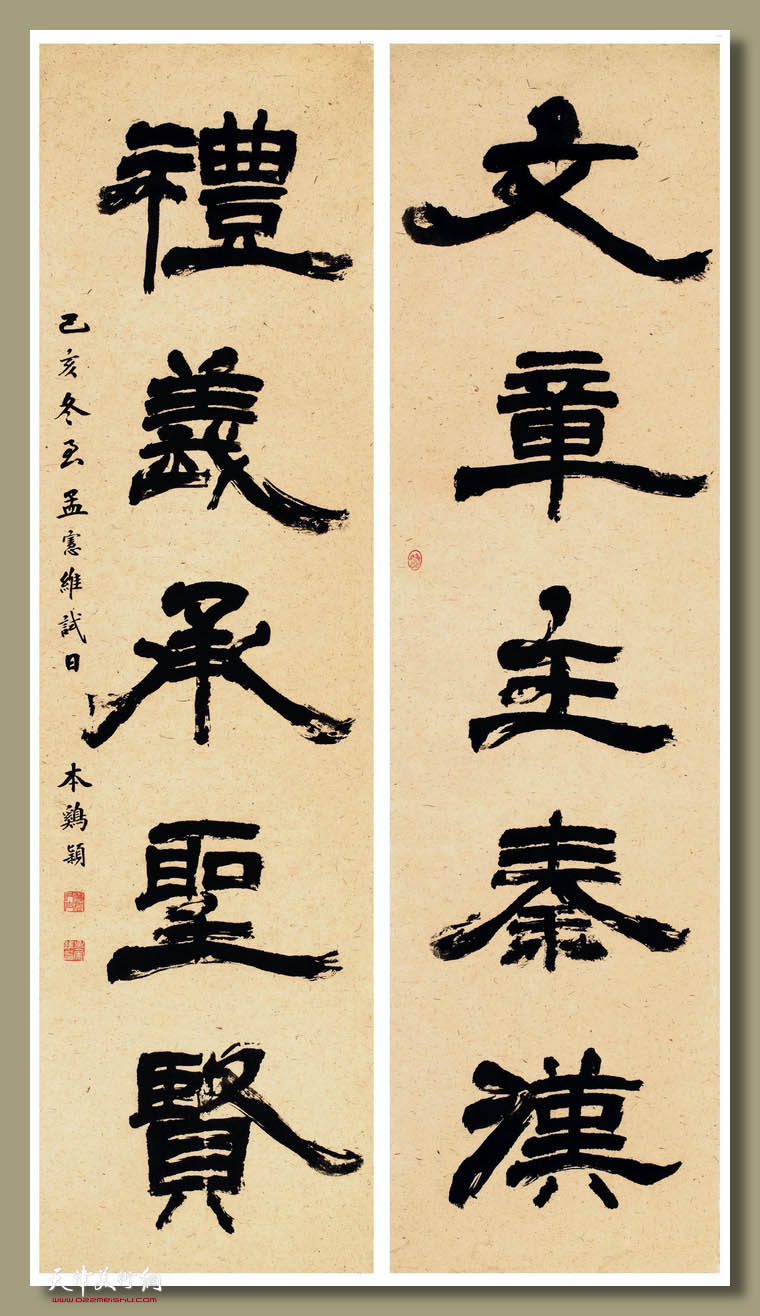 文章主秦漢
禮義承聖賢
己亥冬至孟憲維試日本鷄穎
天津美术网
www.022meishu.com